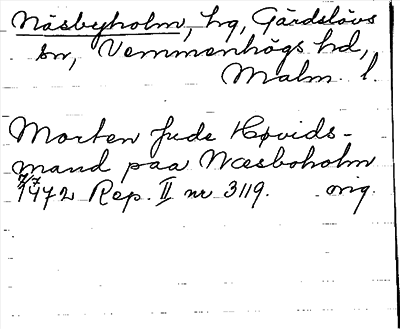 Näsbyholm, hg, Gärdslövs
sn, Vemmenhögs hd,
Malm. l.
Morten Jude Høvids-
mand paa Næsboholm
7/7 1472 Rep. II nr 3119. orig.